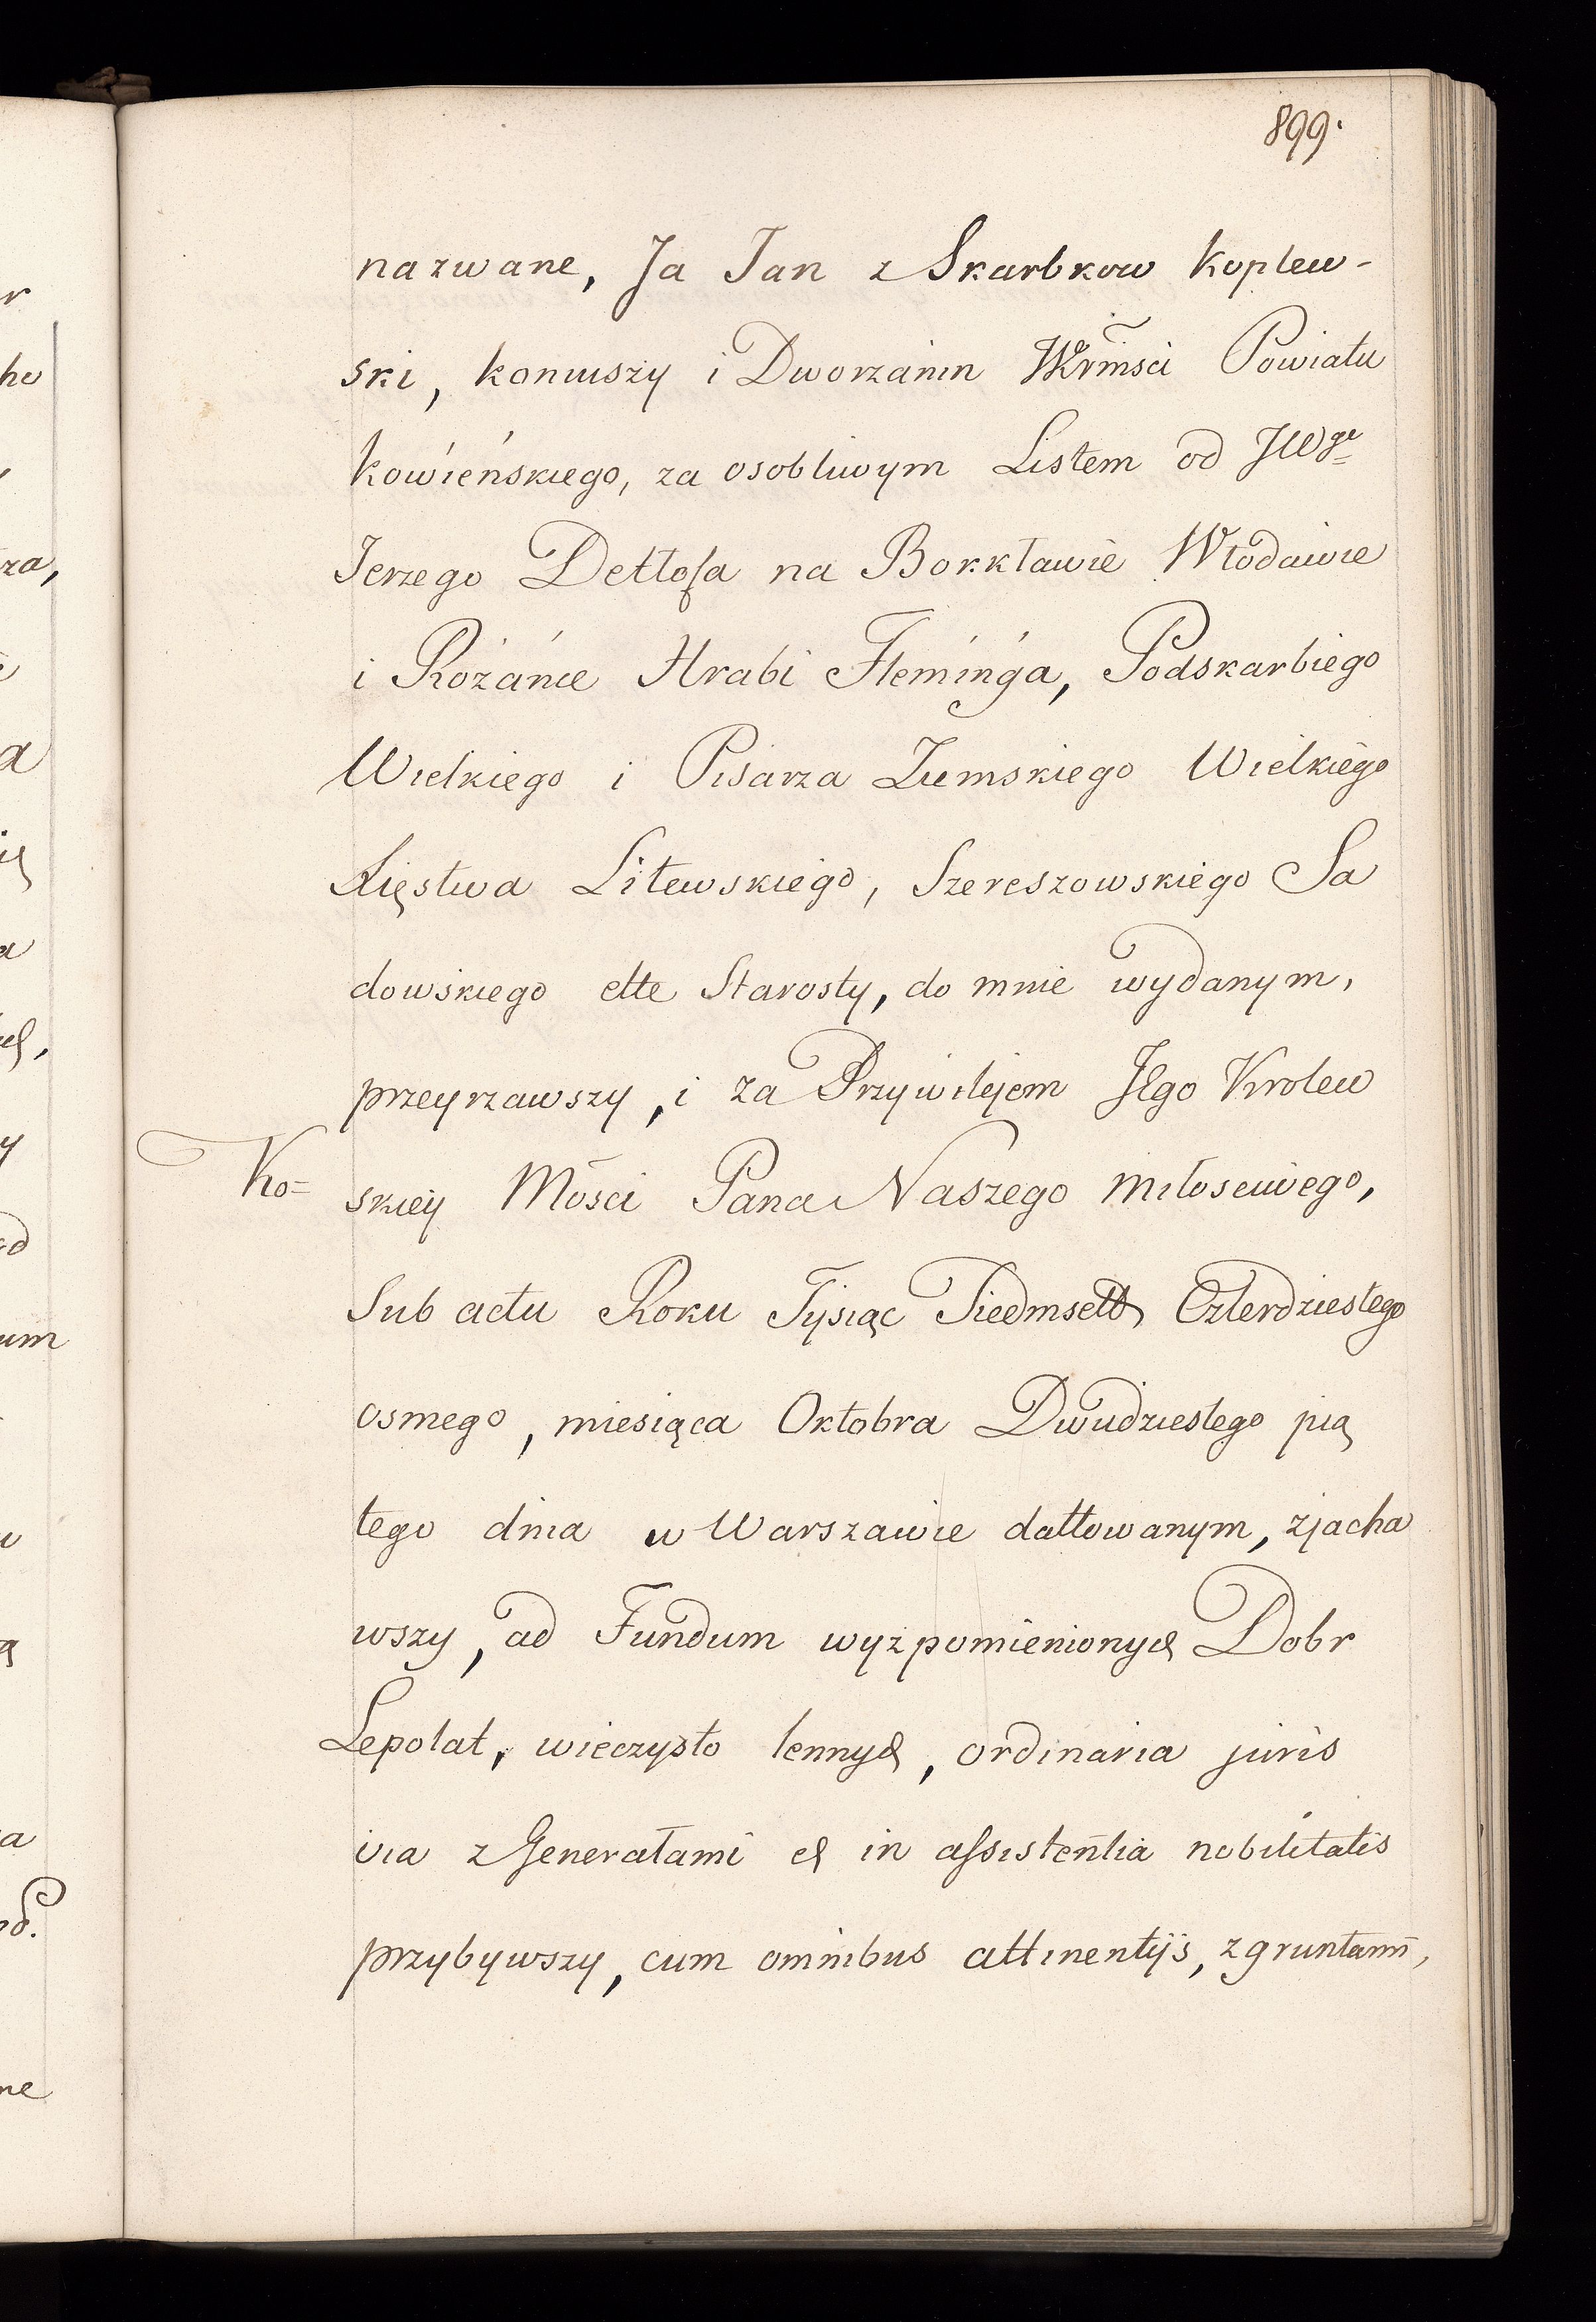 899.
nazwane, Ja Jan z Skarbkow Koplew-
ski, koniuszy i Dworzanin Powiatu
Kowieńskiego, za osobliwym Listem od JWgo
Jerzego Detlofa na Borkławie Włodawie
i Różańce Hrabi Fleminga, Podskarbiego
Wielkiego i Pisarza Ziemskiego Wielkiego
Xięstwa Litewskiego, Szereszowskiego Sa
dowskiego ette Starosty, do mnie wydanym,
przeyrzawszy, i za Przywilejem JEgo Krolew
Ko= skiey Mości Pana Naszego miłosciwego,
Sub actu Roku Tysiąc Siedmsett Czterdziestego
osmego, miesiąca Oktobra Dwudziestego pią
tego dnia w Warszawie dattowanym, zjacha
wszy, ad Fundum wyzpomienionych Dobr
Lepolat, wieczysto lennych, ordinaria juris
via z Generałami et in assistentia nobilitatis
przybywszy, cum omnibus attinentijs, z gruntami,